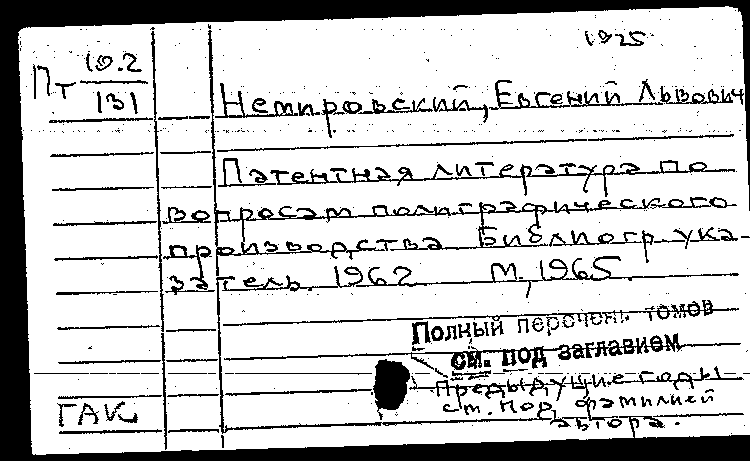 1925
Пт 19.2
131
Немировский, Евгений Львович
Патентная литература по
вопросам полиграфического
производства. Библиогр. ука-
затель. 1962 М., 1965.
Полный перечень томов
см. под заглавием
Предыдущие годы
см. под фамилией
автора.
ГАК